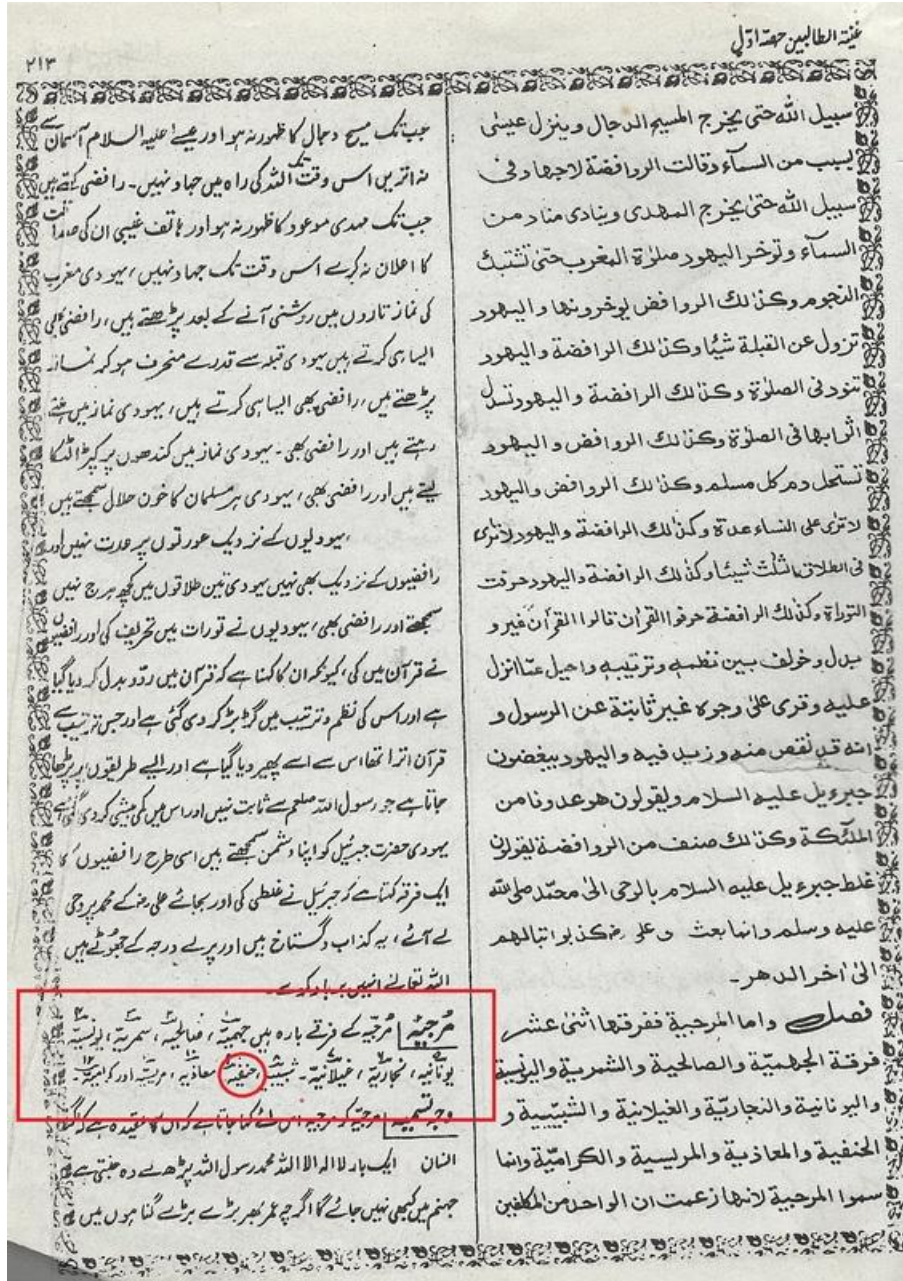 غنیۃ الطالبین حصہ اوّل
۲۱۳
سبیل اللہ حتی یخرج المسیح الدجال وینزل عیسٰی
بسبب من السمآء وقالت الروافضۃ لاجھاد فی
سبیل اللہ حتی یخرج المھدی وینادی مناد من
السمآء وتوخر الیھود صلوٰۃ المغرب حتی تشتبک
النجوم وکذالک الروافض یوخرونھا والیھود
تزول عن القبلۃ شیئا وکذالک الرافضۃ والیھود
تنود فی الصلوٰۃ وکذالک الرافضۃ والیھود تسدل
اثوابھا فی الصلوٰۃ وکذالک الروافض والیھود
تستحل دم کل مسلم وکذالک الروافض والیھود
لاترٰی علی النساء عدۃ وکذالک الرافضۃ والیھود لاترٰی
فی الطلاق الثلٰث شیئا وکذالک الرافضۃ والیھود حرفت
التوراۃ وکذالک الرافضۃ حرفوا القراٰن قالوا القراٰن غیر و
بدل وخولف بین نظمہ وترتیبہ واحیل عما انزل
علیہ وقری علٰی وجوہ غیر ثابتۃ عن الرسول و
انہ قد نقص منہ وزید فیہ والیھود یبغضون
جبرءیل علیہ السلام ویقولون ھو عدونا من
الملٰئکۃ وکذالک صنف من الروافضۃ یقولون
غلط جبرءیل علیہ السلام بالوحی الیٰ محمّد صلی اللہ
علیہ وسلم وانما بعث وعلی رض کذبوا تبالھم
الیٰ اٰخر الدھر۔
فصل واما المرجیۃ ففرقتھا اثنیٰ عشر
فرقۃ الجھمیّۃ والصالحیۃ والشمریۃ والیونسیۃ
والیونانیۃ والنجاریّۃ والغیلانیۃ والشبیّبیۃ و
الحنفیۃ والمعاذیۃ والمریسیۃ والکرامیّۃ وانما
سموا المرجیۃ لانھا زعمت ان الواحد من المکلفین
جب تک مسیح دجال کا ظہور نہ ہو اور عیسٰے علیہ السلام آسمان سے
نہ اتریں اس وقت تک اللہ کی راہ میں جہاد نہیں۔ رافضی کہتے ہیں
جب تک مہدی موعود کا ظہور نہ ہو اور ہاتف غیبی ان کی صداقت
کا اعلان نہ کرے اس وقت تک جہاد نہیں، یہودی مغرب
کی نماز تاروں میں روشنی آنے کے بعد پڑھتے ہیں، رافضی بھی
ایسا ہی کرتے ہیں یہودی قبلہ سے قدرے منحرف ہو کر نماز
پڑھتے ہیں، رافضی بھی ایسا ہی کرتے ہیں، یہودی نماز میں ہلتے
رہتے ہیں اور رافضی بھی۔ یہودی نماز میں کندھوں پر کپڑا لٹکا
لیتے ہیں اور رافضی بھی، یہودی ہر مسلمان کا خون حلال سمجھتے ہیں
یہودیوں کے نزدیک عورتوں پر عدت نہیں اور
رافضیوں کے نزدیک بھی نہیں یہودی تین طلاقوں میں کچھ ہرج نہیں
سمجھتے اور رافضی بھی، یہودیوں نے تورات میں تحریف کی اور رافضیوں
نے قرآن میں کی، کیونکہ ان کا کہنا ہے کہ قرآن میں ردّ و بدل کر دیا گیا
ہے اور اس کی نظم و ترتیب میں گڑبڑ کر دی گئی ہے اور جس ترتیب سے
قرآن اترا تھا اس سے اسے پھیر دیا گیا ہے اور ایسے طریقوں پر پڑھا
جاتا ہے جو رسول اللہ صلعم سے ثابت نہیں اور اس میں کمی بیشی کر دی گئی ہے
یہودی حضرت جبرئیل کو اپنا دشمن سمجھتے ہیں اسی طرح رافضیوں کا
ایک فرقہ کہتا ہے کہ جبرئیل نے غلطی کی اور بجائے علی رض کے محمد پر وحی
لے آئے، یہ کذاب و گستاخ ہیں اور پرلے درجہ کے جھوٹے ہیں
اللہ تعالٰے انہیں برباد کرے۔
مُرجیَہ مُرجیّہ کے فرقے بارہ ہیں جہمیّہ، صالحیّہ، سمریّہ، یونسیّہ
یونانیہ، نجاریّہ، غیلانیّہ۔ شبیبیّہ، حنفیّہ، معاذیہ، مریسیّہ اور کرامیّہ۔
وجہ تسمیہ مرجیہ کو مرجیہ اس لئے کہا جاتا ہے کہ ان کا عقیدہ ہے کہ اگر
انسان ایک بار لا الہ الا اللہ محمد رسول اللہ پڑھ لے وہ جنتی ہے
جہنم میں کبھی نہیں جائے گا اگرچہ عمر بھر بڑے بڑے گناہوں میں